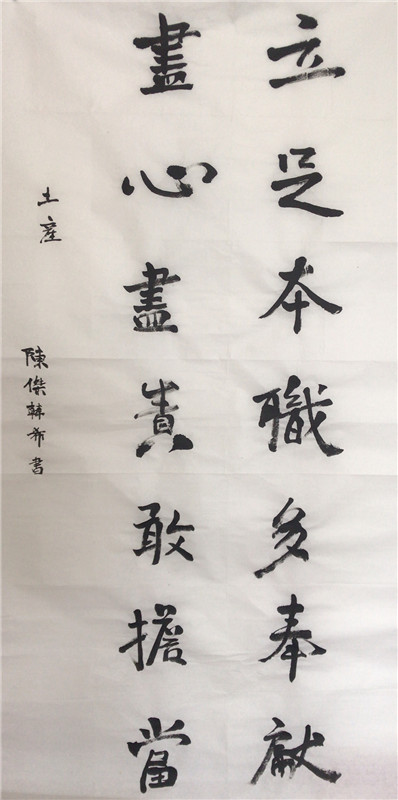 立足本職多奉獻
盡心盡責敢擔當
土産
陳傑韓希書